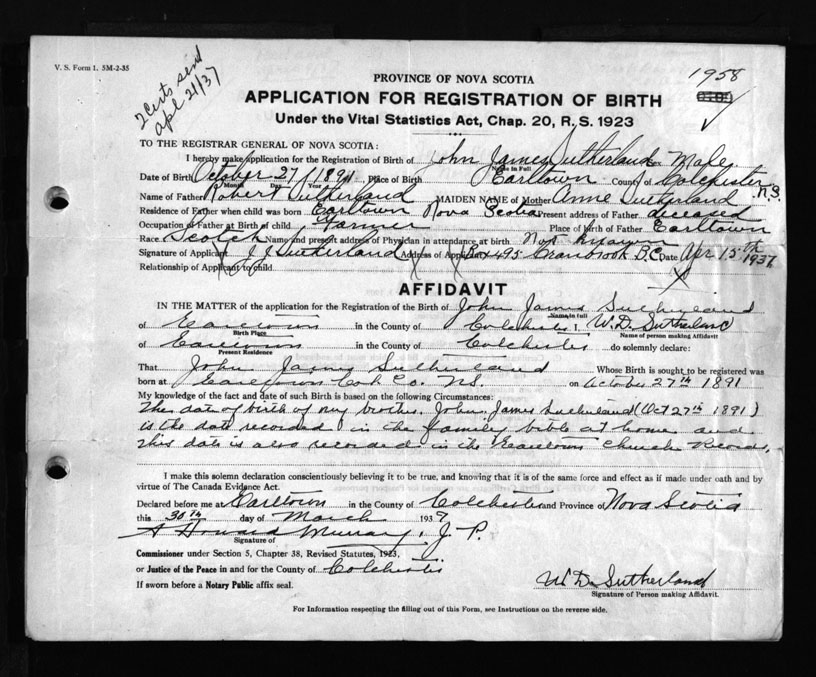 V. S. Form 1. 5M-2-35
2 Certs send
apl 21/37
1958
PROVINCE OF NOVA SCOTIA
APPLICATION FOR REGISTRATION OF BIRTH
Under the Vital Statistics Act, Chap. 20, R. S. 1923
TO THE REGISTRAR GENERAL OF NOVA SCOTIA:
I hereby make application for the Registration of Birth of John James Sutherland Male
Name in Full
Date of Birth October 27 / 1891, Place of Birth Earltown County of Colchester N.S.
Month Day Year
Name of Father Robert Sutherland MAIDEN NAME of Mother Anne Sutherland
Residence of Father when child was born Earltown Nova Scotia Present address of Father deceased
Occupation of Father at Birth of child Farmer Place of birth of Father Earltown
Race Scotch Name and present address of Physician in attendance at birth Not known
Signature of Applicant J J Sutherland Address of Applicant Box 495 Cranbrook B.C. Date Apr 15th 1937
Relationship of Applicant to child
AFFIDAVIT
IN THE MATTER of the application for the Registration of the Birth of John James Sutherland
Name in full
of Earltown in the County of Colchester I, W. D. Sutherland
Birth Place Name of person making Affidavit
of Earltown in the County of Colchester do solemnly declare:
Present Residence
That John James Sutherland Whose Birth is sought to be registered was
born at Earltown Col. Co. N.S. on October 27th 1891
My knowledge of the fact and date of such Birth is based on the following Circumstances:
The date of birth of my brother John James Sutherland (Oct 27th 1891)
is the date recorded in the family bible at home and
this date is also recorded in the Earltown Church Records.
I make this solemn declaration conscientiously believing it to be true, and knowing that it is of the same force and effect as if made under oath and by
virtue of The Canada Evidence Act.
Declared before me at Earltown in the County of Colchester and Province of Nova Scotia
this 30th day of March 1937
Howard Murray, J. P.
Signature of
Commissioner under Section 5, Chapter 38, Revised Statutes, 1923,
or Justice of the Peace in and for the County of Colchester
If sworn before a Notary Public affix seal.
W. D. Sutherland
Signature of Person making Affidavit.
For Information respecting the filling out of this Form, see Instructions on the reverse side.